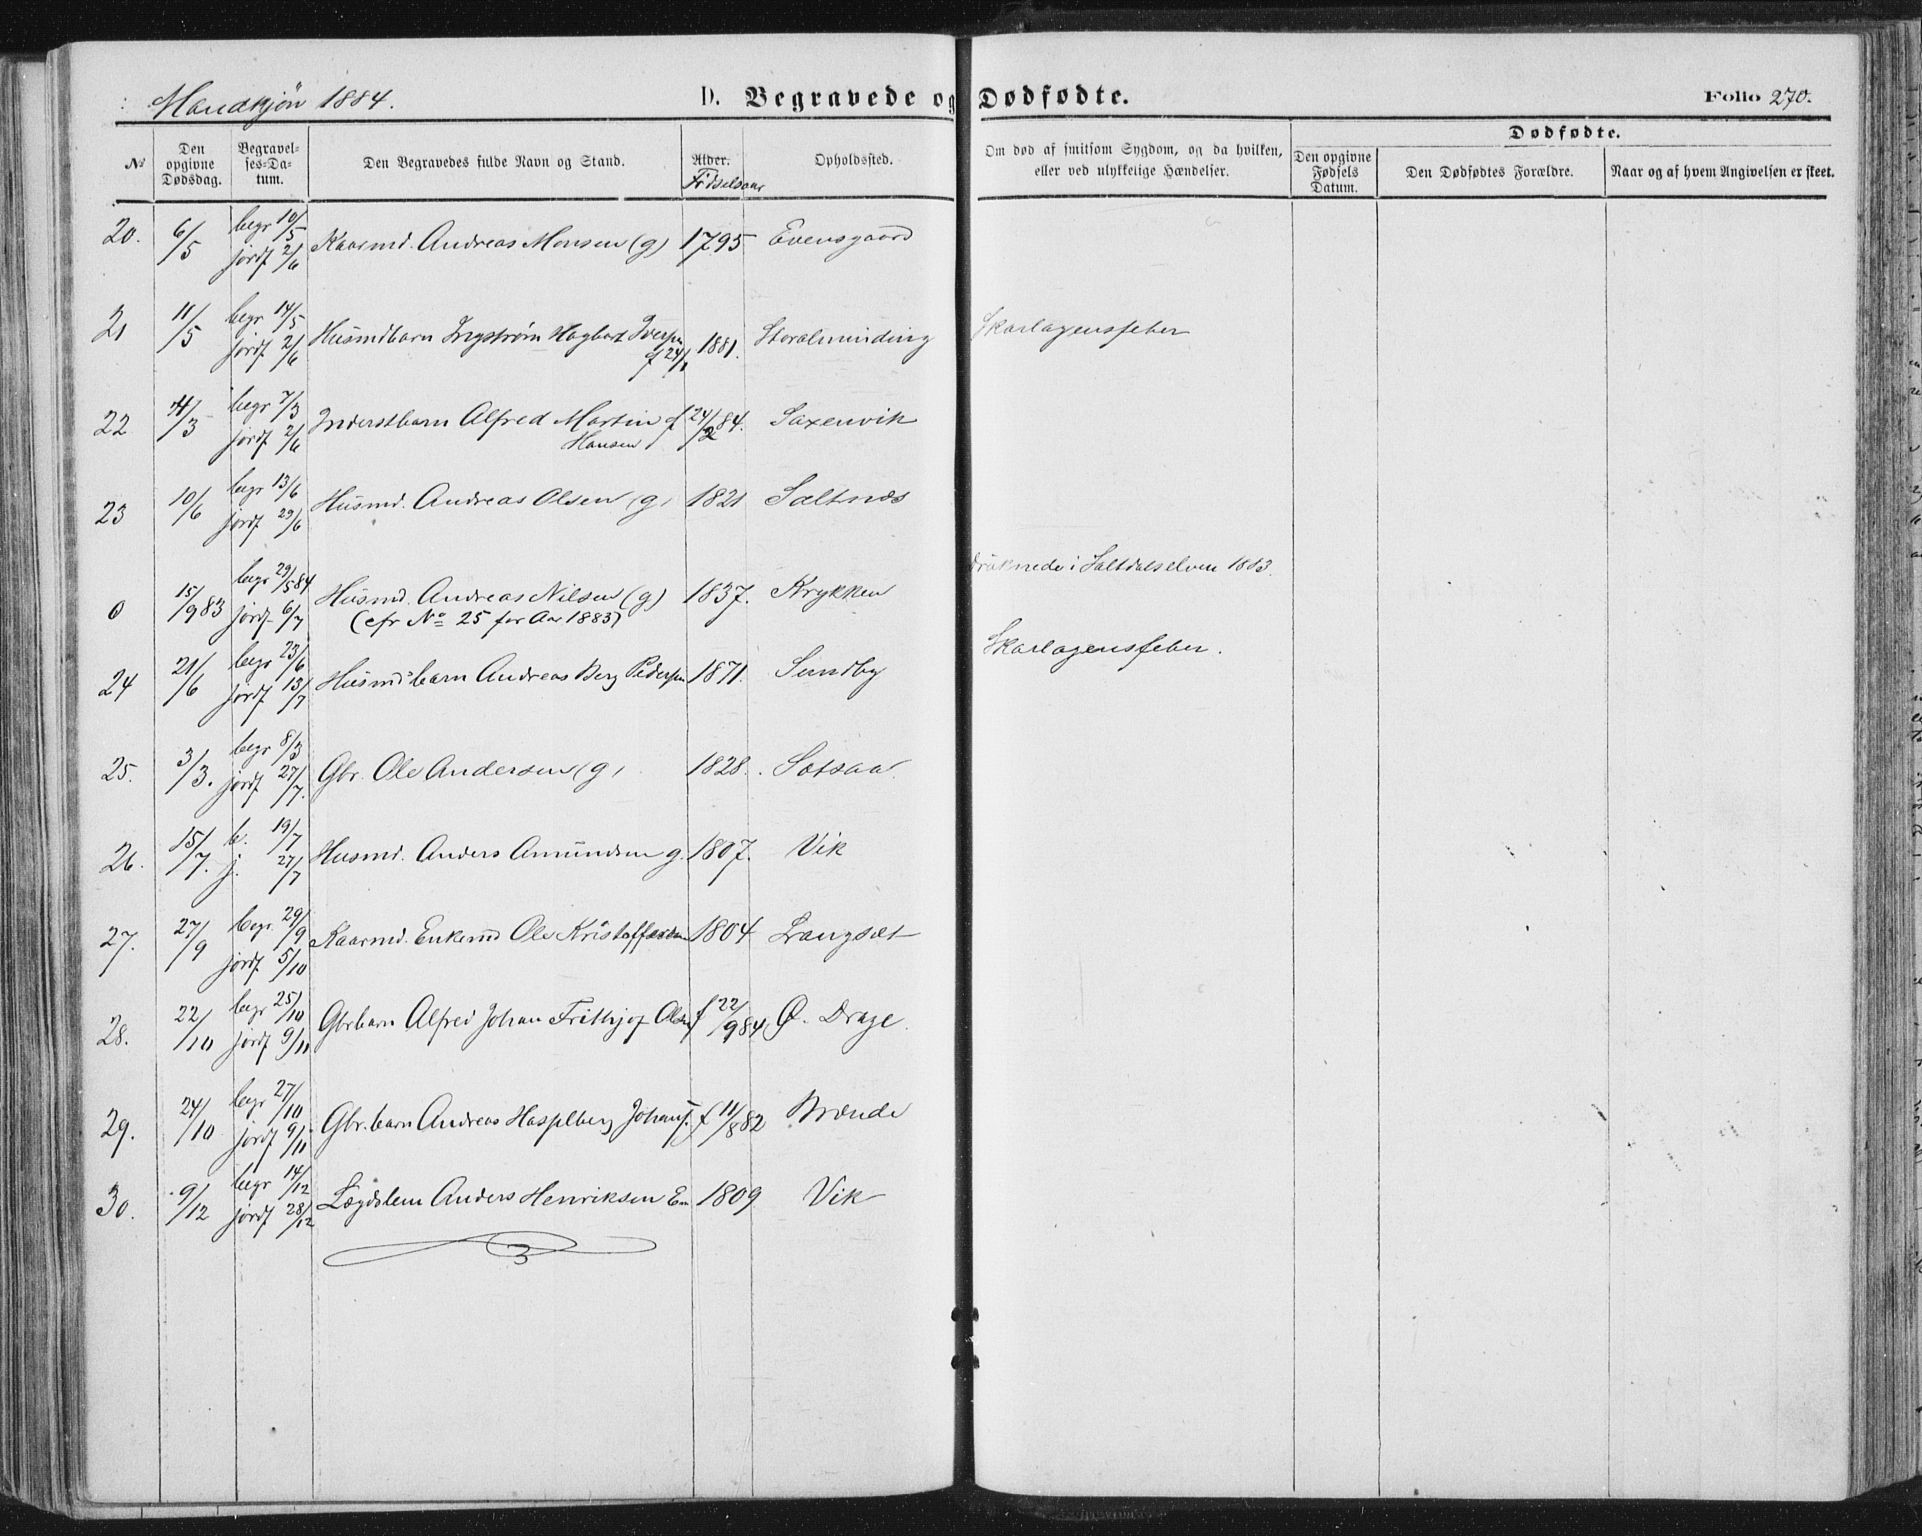 Mandkjön 1884.
D. Begravede og Dødfødte.
Folio 270.
No
Den opgivne Dødsdag.
Begravelses-Datum.
Den Begravedes fulde Navn og Stand.
Alder. Fødselsaar
Opholdssted.
Om død af smitsom Sygdom, og da hvilken, eller ved ulykkelige Hændelser.
Dødfødte.
Den opgivne Fødsels Datum.
Den Dødfødtes Forældre.
Naar og af hvem Angivelsen er skeet.
20. 6/5 begr 10/5 jordf 2/6 Kaarmd. Andreas Monsen (g) 1795 Evensgaard
21 11/5 begr 14/5 jordf 2/6 Husmdbarn Ingstrøm Hagbart Iversen f 24/1 1881. Storalminding Skarlagensfeber
22 4/3 begr 7/3 jordf 2/6 Inderstbarn Alfred Martin Hansen f 24/2 84. Saxenvik
23 10/6 begr 13/6 jordf 29/6 Husmd. Andreas Olsen (g) 1821 Saltnæs
0 15/9 83 begr 29/5 84 jordf 6/7 Husmd. Andreas Nilsen (g) 1837. Krykken druknede i Saltdalselven 1883.
(cfr No 25 for Aar 1883)
24 21/6 begr 23/6 jordf 13/7 Husmdbarn Andreas Berg Pedersen 1871. Sundby Skarlagensfeber.
25. 3/3. begr 8/3 jordf 27/7. Gbr. Ole Andersen (g) 1828. Sotsaa.
26. 15/7. b. 19/7 j. 27/7 Husmd. Anders Amundsen g. 1807. Vik
27. 27/9 begr. 29/9 jordf 5/10 Kaarmd. Enkemd Ole Kristoffersen 1804 Langsæt
28. 22/10 begr 25/10 jordf 9/11 Gbrbarn Alfred Johan Frithjof Olsen f 22/9 84 Ø. Drage.
29. 24/10 begr 27/10 jordf 9/11 Gbr.barn Andreas Hasselberg Johans. f 11/8 82 Brænde
30. 9/12 begr 14/12 jordf 28/12 Lægdslem Anders Henriksen Em 1809 Vik
3